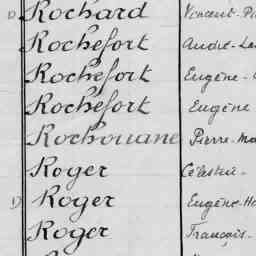 D Rochard Vincent-Pi
Rochefort André-Lé
Rochefort Eugène-
Rochefort Eugène
Rochouane Pierre-Ma
Roger Célestin-
D Roger Eugène-He
Roger François-